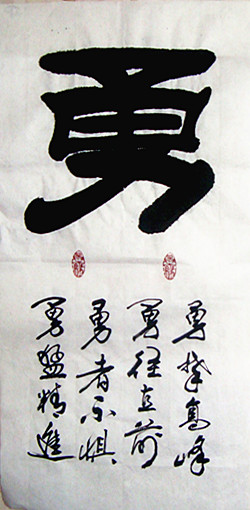 勇
勇攀高峰
勇往直前
勇者不惧
勇猛精進